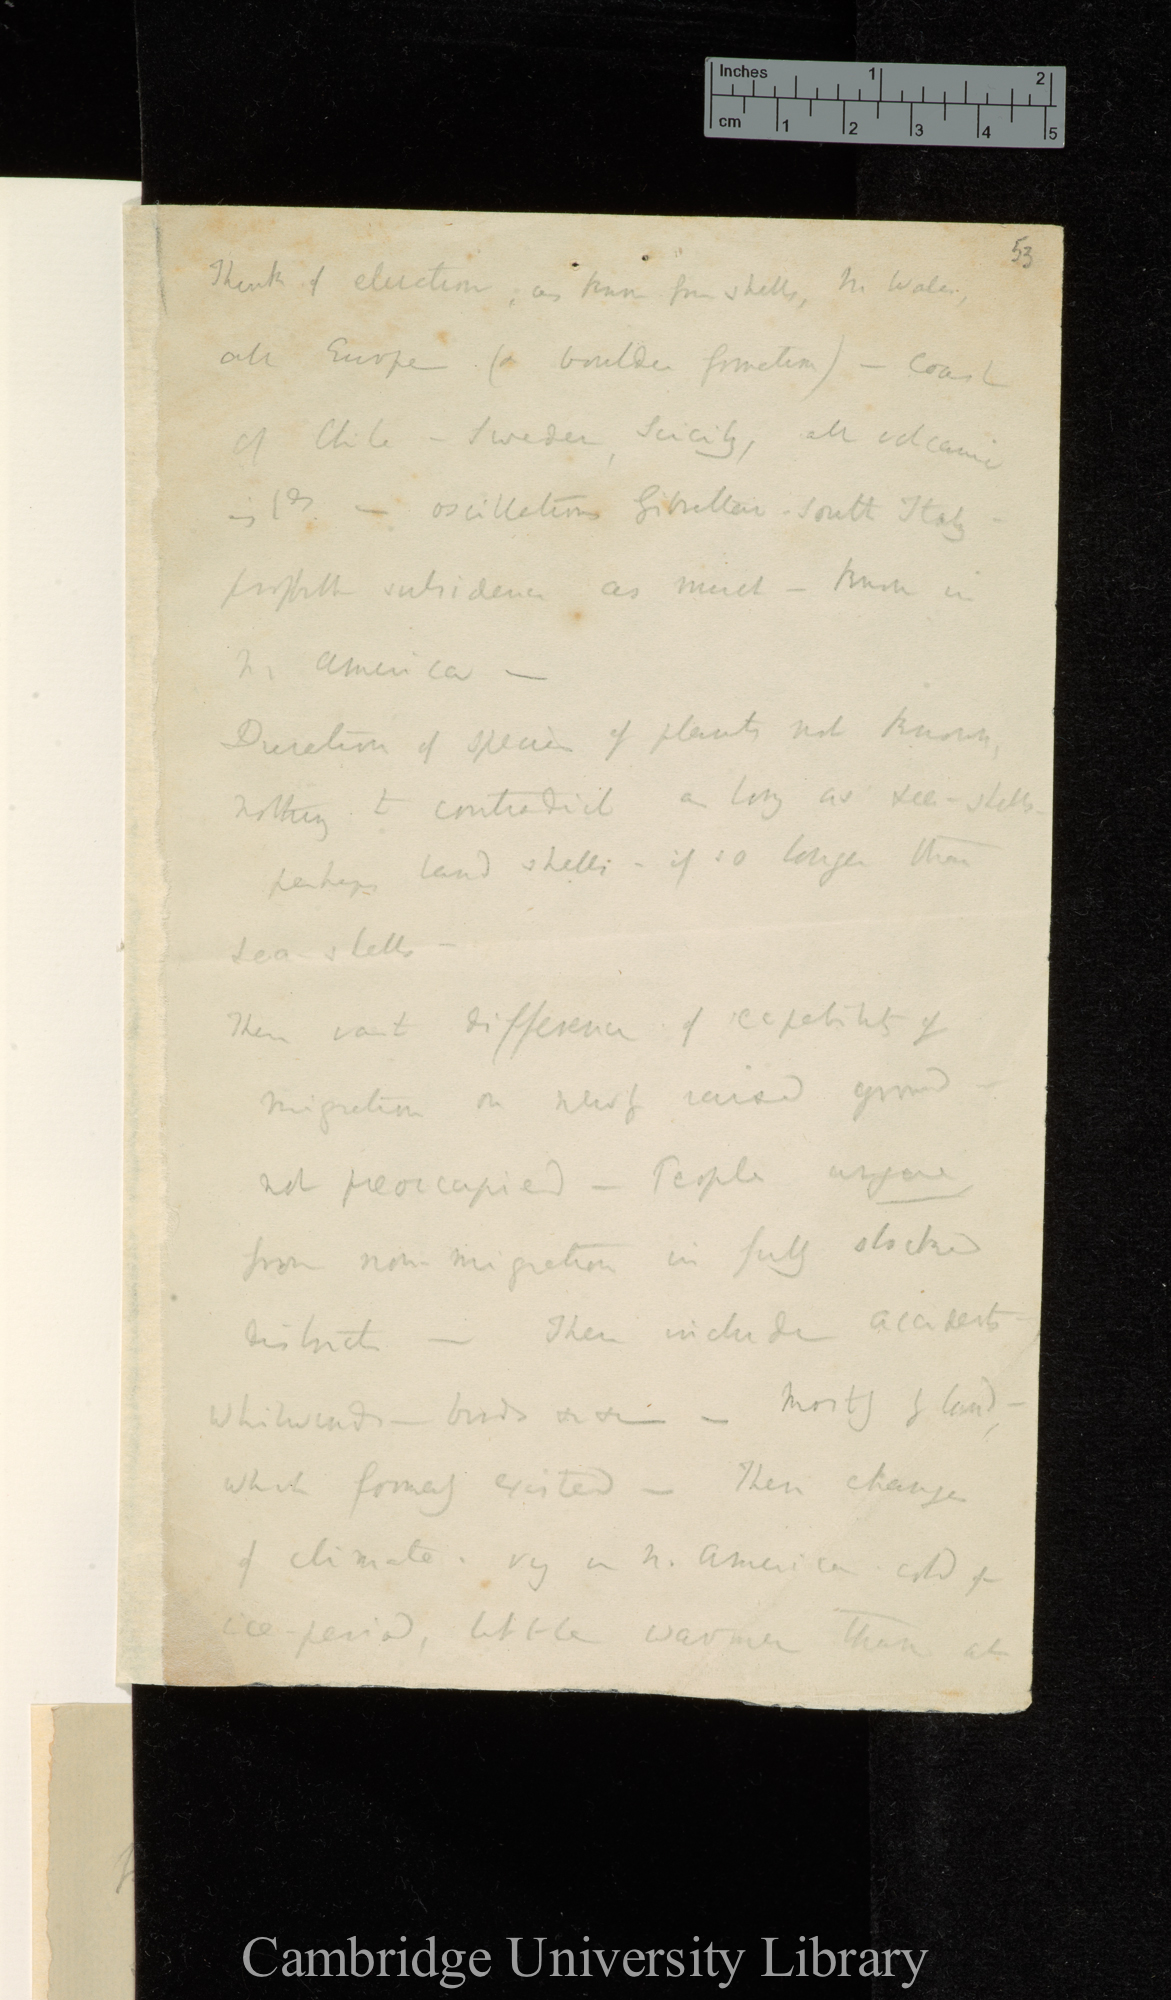 Inches 1 2
cm 1 2 3 4 5
53
Think of elevation, as known from shells, N. Wales,
all Europe (& boulder formation) — Coast
of Chile — Sweden, Scicily, all volcanic
islds. — oscillations Gibraltar - South Italy -
probably subsidence as much — known in
N. America —
Duration of species of plants not known,
nothing to contradict as long as sea-shells -
perhaps land shells - if so longer than
sea-shells —
Then vast difference of capability of
migration on newly raised ground —
not preoccupied — People argue
from non-migration in fully stocked
districts — Then include accidents —
Whirlwinds — birds &c &c — — Mostly of land, —
which formerly existed — Then changes
of climate. in N. America cold of
ice-period, little warmer than at
Cambridge University Library